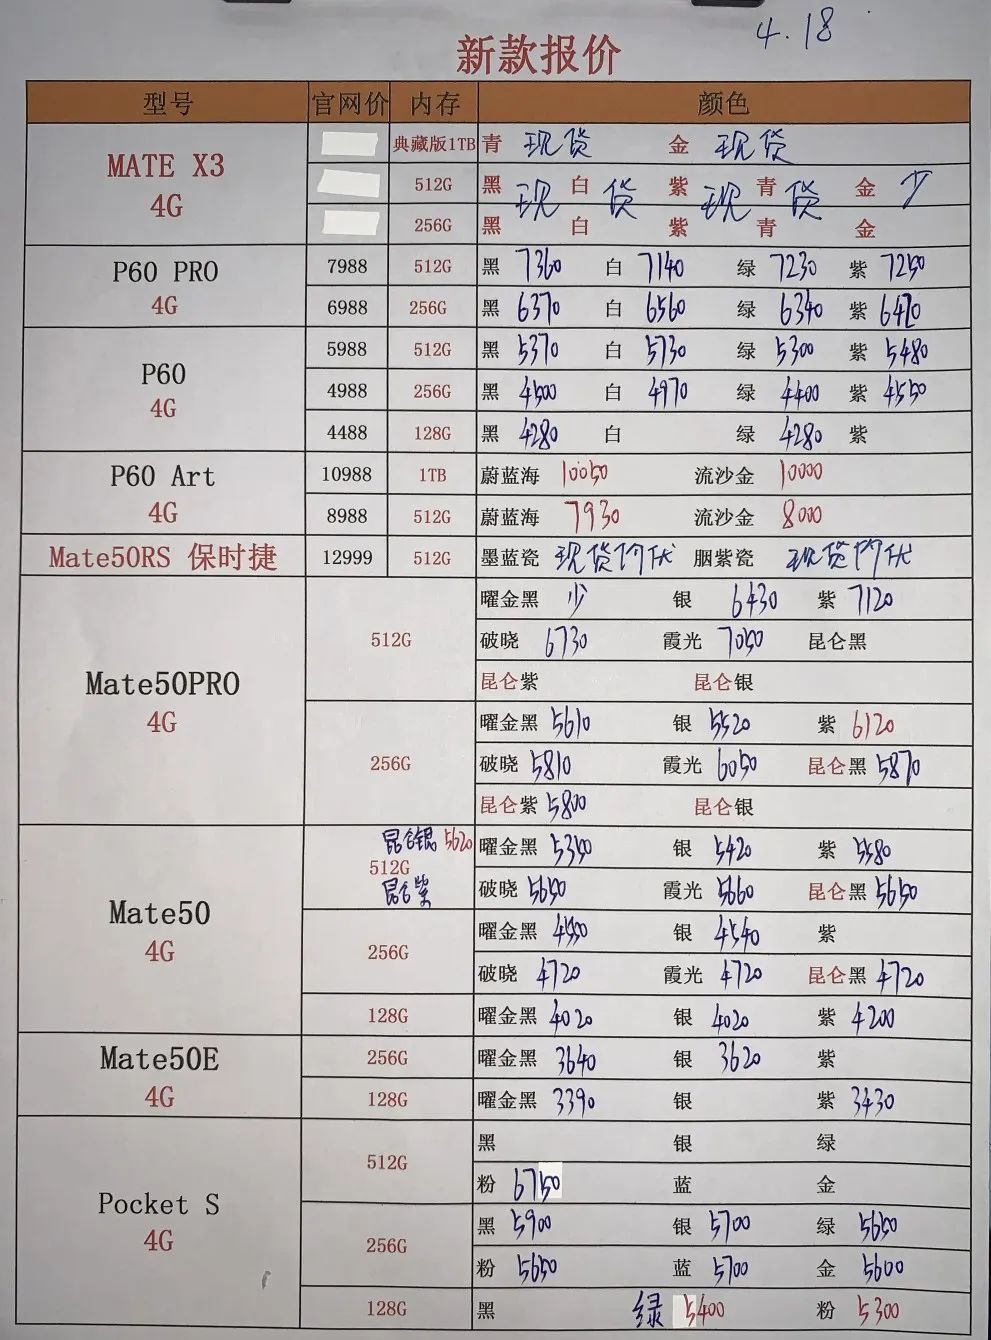 4.18
新款报价
型号 官网价 内存 颜色
MATE X3 4G
典藏版1TB 青 现货 金 现货
512G 黑 白 紫 青 金 少
现货 现货
256G 黑 白 紫 青 金
P60 PRO 4G
7988 512G 黑 7360 白 7140 绿 7230 紫 7250
6988 256G 黑 6370 白 6560 绿 6340 紫 6470
P60 4G
5988 512G 黑 5370 白 5730 绿 5300 紫 5480
4988 256G 黑 4500 白 4970 绿 4400 紫 4550
4488 128G 黑 4280 白 绿 4280 紫
P60 Art 4G
10988 1TB 蔚蓝海 10050 流沙金 10000
8988 512G 蔚蓝海 7930 流沙金 8000
Mate50RS 保时捷 12999 512G 墨蓝瓷 现货 胭紫瓷 现货
Mate50PRO 4G
512G 曜金黑 少 银 6430 紫 7120
破晓 6730 霞光 7050 昆仑黑
昆仑紫 昆仑银
256G 曜金黑 5610 银 5520 紫 6120
破晓 5810 霞光 6050 昆仑黑 5870
昆仑紫 5800 昆仑银
Mate50 4G
昆仑银 5620
512G
昆仑紫
曜金黑 5350 银 5420 紫 5580
破晓 5650 霞光 5660 昆仑黑 5650
256G 曜金黑 4550 银 4540 紫
破晓 4720 霞光 4720 昆仑黑 4720
128G 曜金黑 4020 银 4020 紫 4200
Mate50E 4G
256G 曜金黑 3640 银 3620 紫
128G 曜金黑 3390 银 紫 3430
Pocket S 4G
512G 黑 银 绿
粉 6750 蓝 金
256G 黑 5900 银 5700 绿 5650
粉 5650 蓝 5700 金 5600
128G 黑 绿 5400 粉 5300